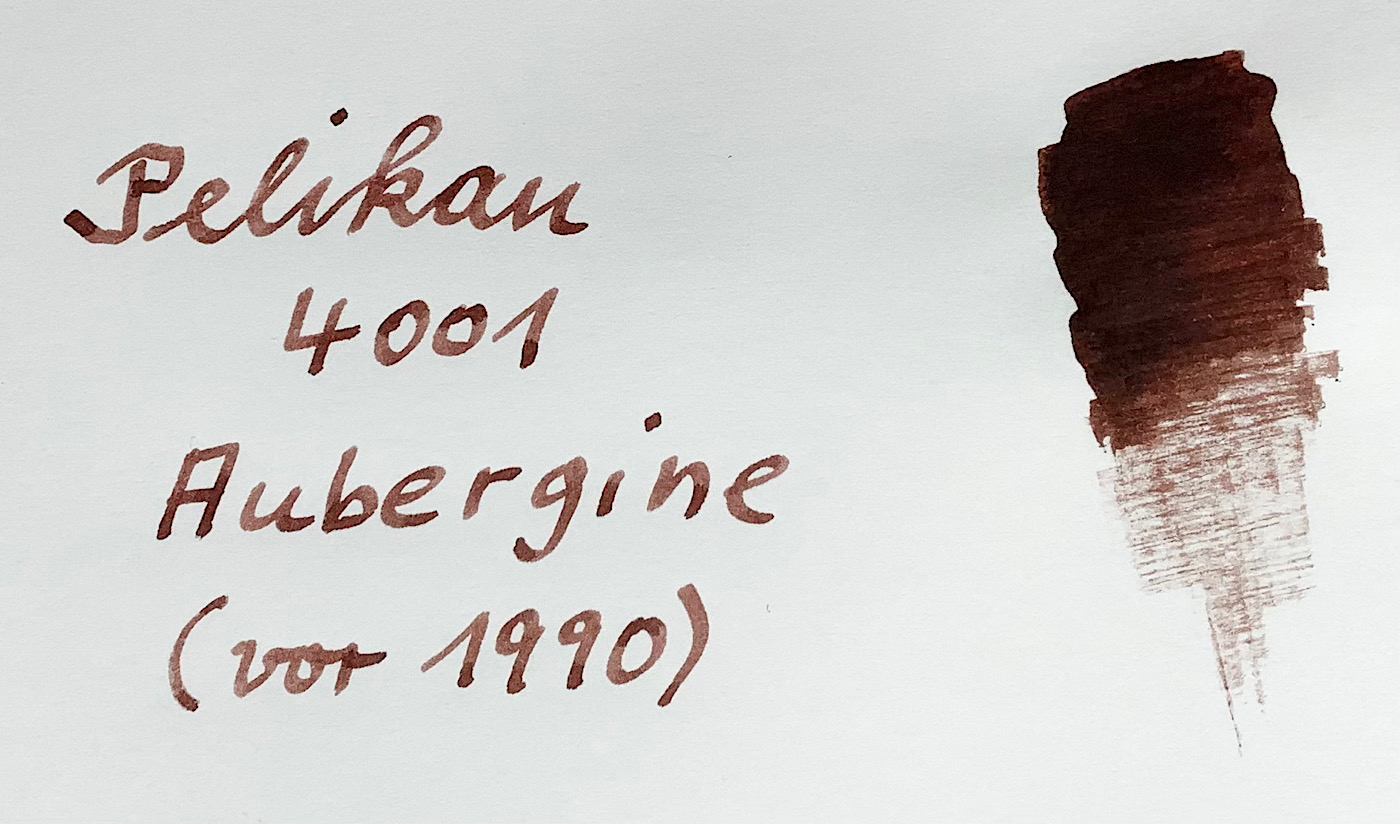 Pelikan
4001
Aubergine
(vor 1990)